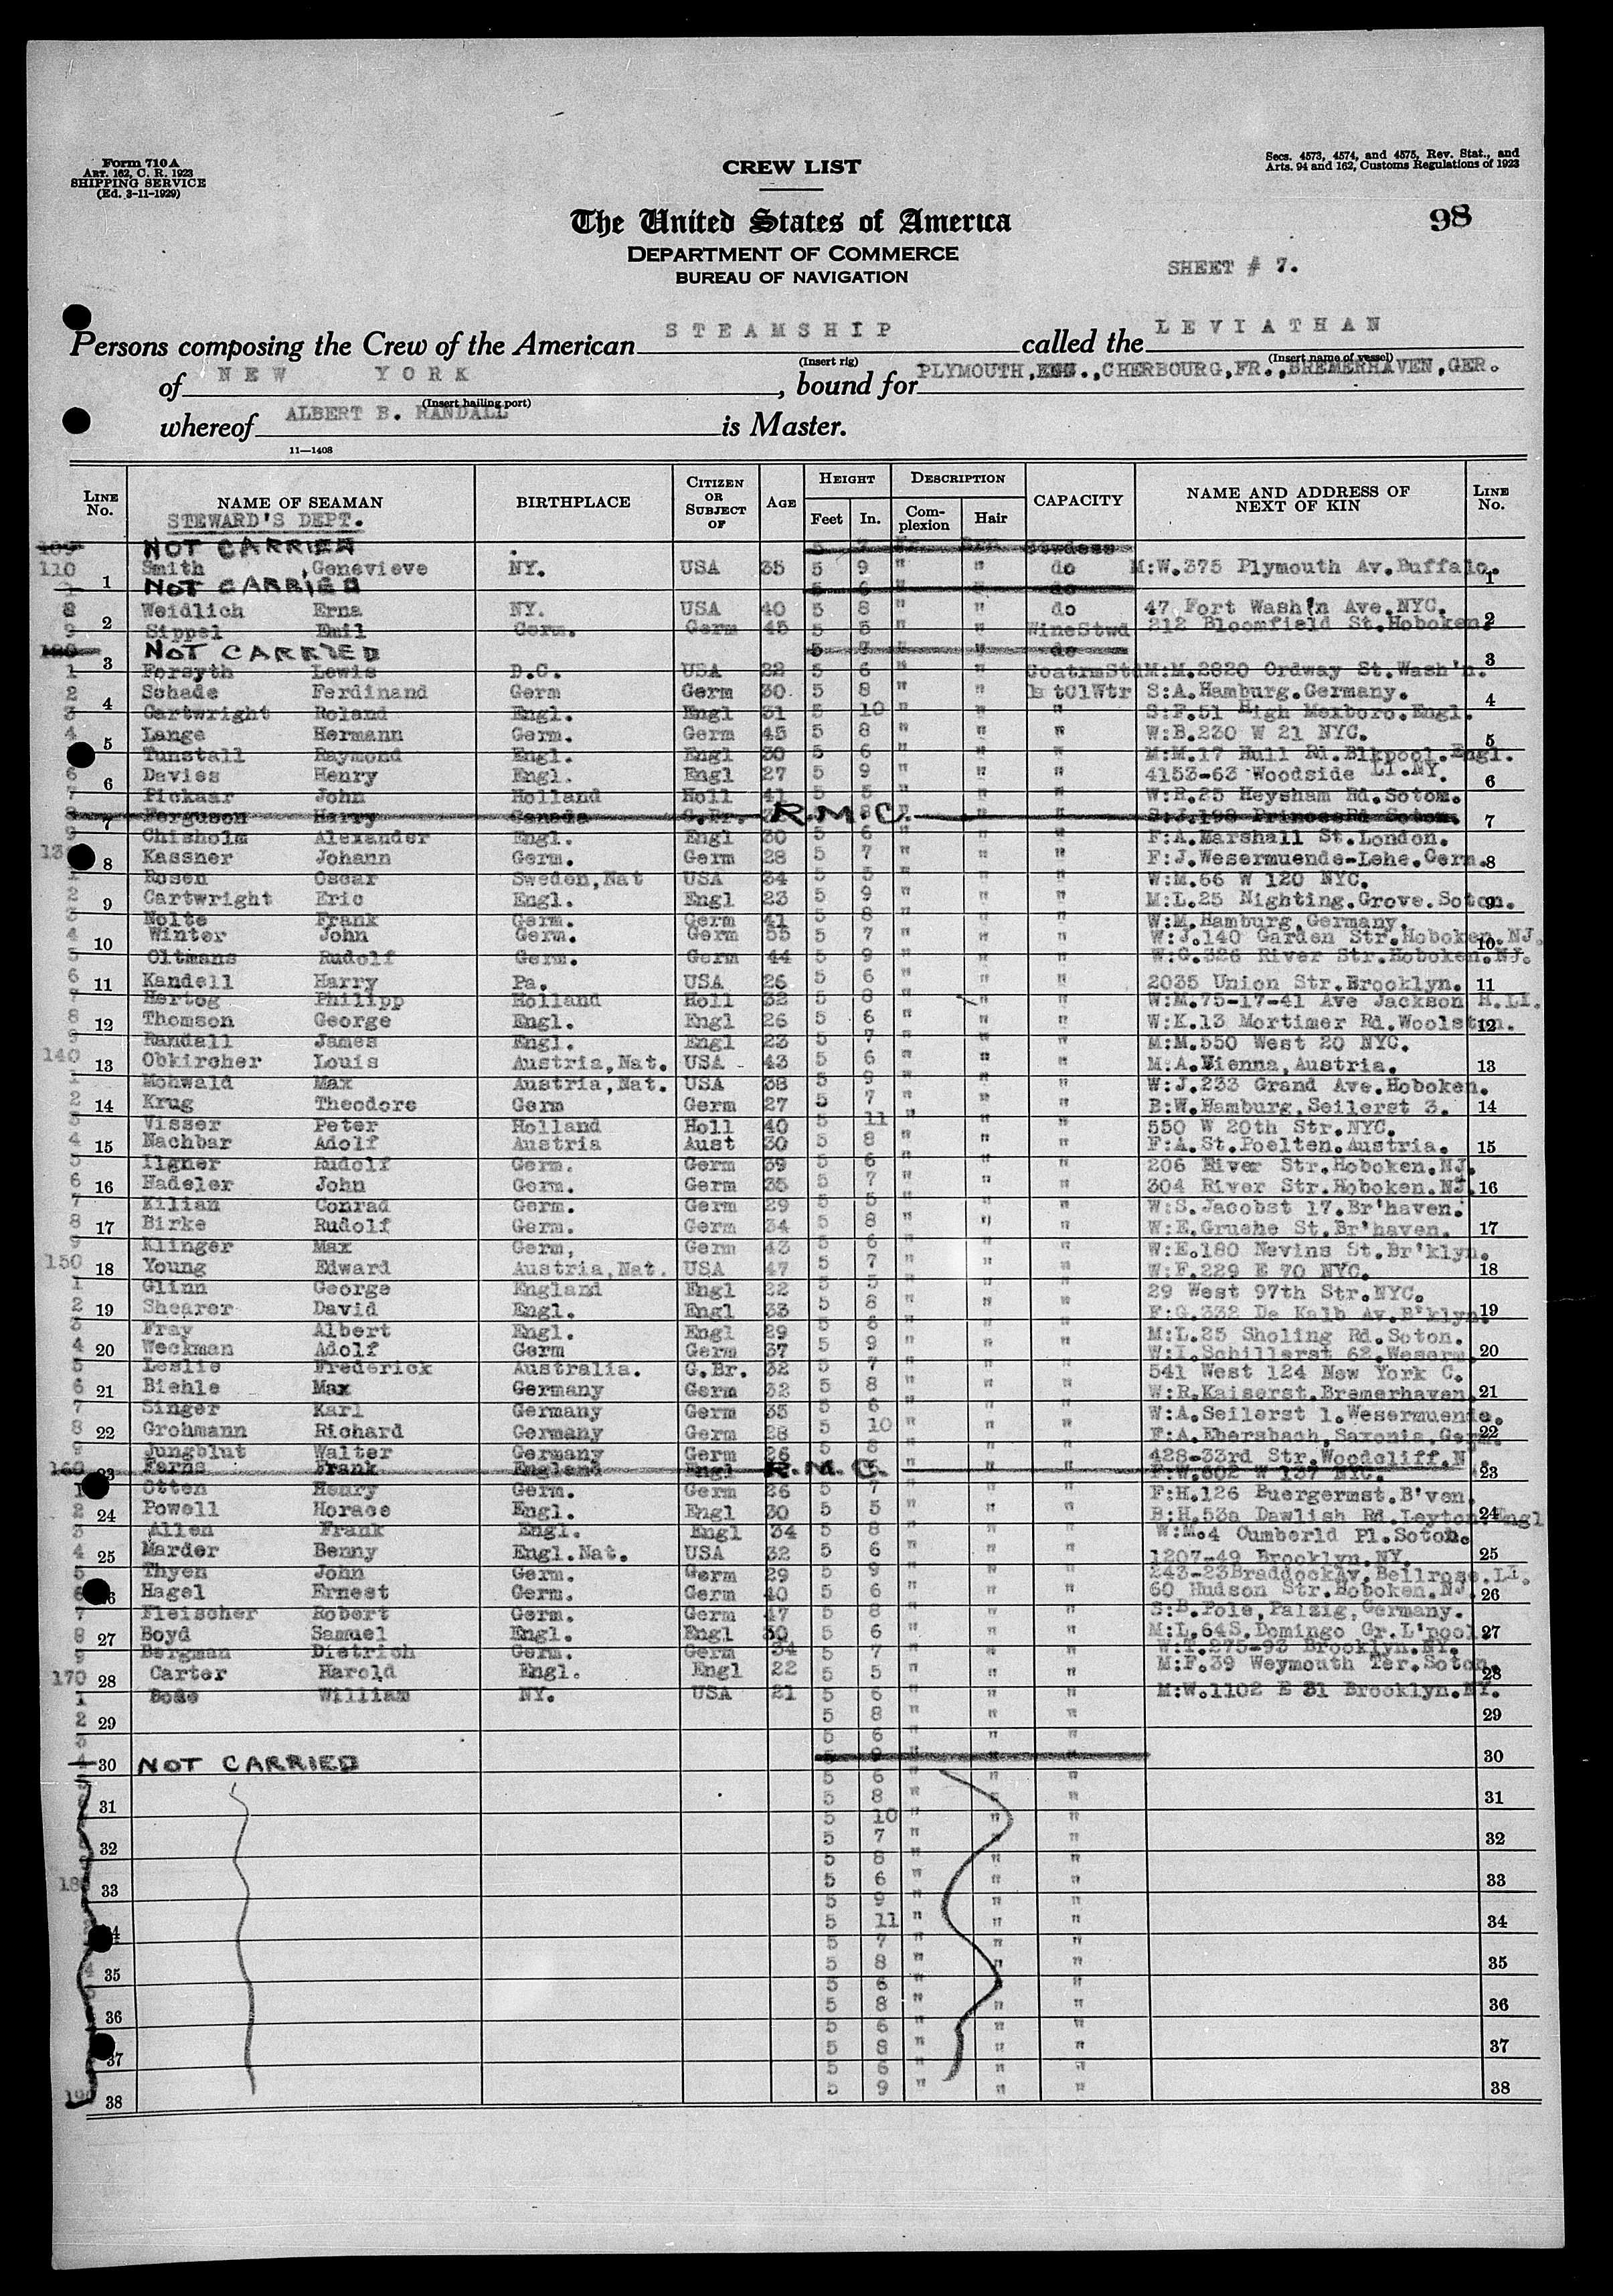 Form 710 A
ART. 162, C. R. 1923
SHIPPING SERVICE
(Ed. 3-11-1929)
CREW LIST
Secs. 4573, 4574, and 4575, Rev. Stat., and
Arts. 94 and 162, Customs Regulations of 1923
The United States of America
98
DEPARTMENT OF COMMERCE
BUREAU OF NAVIGATION
SHEET # 7.
Persons composing the Crew of the American STEAMSHIP called the LEVIATHAN
(Insert rig) (Insert name of vessel)
of NEW YORK, bound for PLYMOUTH, ENG., CHERBOURG, FR., BREMERHAVEN, GER.
(Insert hailing port)
whereof ALBERT B. RANDALL is Master.
11—1408
LINE No. NAME OF SEAMAN BIRTHPLACE CITIZEN OR SUBJECT OF AGE HEIGHT Feet In. DESCRIPTION Complexion Hair CAPACITY NAME AND ADDRESS OF NEXT OF KIN LINE No.
STEWARD'S DEPT.
NOT CARRIED 5 7
110 Smith ,Genevieve NY. USA 35 5 9 " " do M:W.375 Plymouth Av.Buffalo.
1 NOT CARRIED 5 6 " " do 1
8 Weidlich Erna NY. USA 40 5 8 " " do 47 Fort Wash'n Ave.NYC.
2 9 Sippel Emil Germ. Germ 45 5 5 " " WineStwd 212 Bloomfield St.Hoboken. 2
NOT CARRIED 5 7 " " do
3 1 Forsyth Lewis D.C. USA 22 5 6 " " CoatrmStd M:M.2820 Ordway St.Wash'n. 3
2 Schade Ferdinand Germ Germ 30 5 8 " " 1stClWtr S:A.Hamburg.Germany.
4 3 Cartwright Roland Engl. Engl 31 5 10 " " " S:F.51 High Mexboro.Engl. 4
4 Lange Hermann Germ. Germ 45 5 8 " " " W:B.230 W 21 NYC.
5 Tunstall Raymond Engl. Engl 30 5 6 " " " M:M.17 Hull Rd.Blkpool.Engl. 5
6 Davies Henry Engl. Engl 27 5 9 " " " 4153-63 Woodside LI.NY.
6 7 Pickaar John Holland Holl 41 5 5 " " " W:R.25 Heysham Rd.Soton. 6
8 Ferguson Harry Canada G.Br. R.M.C. S:J.198 Princess Rd Soton.
7 9 Chisholm Alexander Engl. Engl 30 5 6 " " " F:A.Marshall St.London. 7
Kassner Johann Germ. Germ 28 5 7 " " " F:J.Wesermuende-Lehe.Germ.
8 1 Rosen Oscar Sweden,Nat USA 34 5 5 " " " W:M.66 W 120 NYC. 8
2 Cartwright Eric Engl. Engl 23 5 9 " " " M:L.25 Nighting.Grove.Soton.
9 3 Nolte Frank Germ. Germ 41 5 8 " " " W:M.Hamburg,Germany. 9
4 Winter John Germ. Germ 55 5 7 " " " W:J.140 Garden Str.Hoboken.NJ.
10 5 Oltmans Rudolf Germ. Germ 44 5 9 " " " W:G.326 River Str.Hoboken.NJ. 10
6 Kandell Harry Pa. USA 26 5 6 " " " 2035 Union Str.Brooklyn.
11 7 Hertog Philipp Holland Holl 32 5 8 " " " W:M.75-17-41 Ave Jackson H.LI. 11
8 Thomson George Engl. Engl 26 5 6 " " " W:K.13 Mortimer Rd.Woolston.
12 9 Randall James Engl. Engl 23 5 7 " " " M:M.550 West 20 NYC. 12
140 Obkircher Louis Austria,Nat. USA 43 5 6 " " " M:A.Vienna,Austria.
13 1 Mohwald Max Austria,Nat. USA 38 5 9 " " " W:J.233 Grand Ave.Hoboken. 13
2 Krug Theodore Germ Germ 27 5 7 " " " B:W.Hamburg,Seilerst 3.
14 3 Visser Peter Holland Holl 40 5 11 " " " 550 W 20th Str.NYC. 14
4 Nachbar Adolf Austria Aust 30 5 8 " " " F:A.St.Poelten.Austria.
15 5 Ilgner Rudolf Germ. Germ 39 5 6 " " " 206 River Str.Hoboken.NJ. 15
6 Hadeler John Germ. Germ 35 5 7 " " " 304 River Str.Hoboken.NJ.
16 7 Kilian Conrad Germ. Germ 29 5 5 " " " W:S.Jacobst 17.Br'haven. 16
8 Birke Rudolf Germ. Germ 34 5 8 " " " W:E.Gruehe St.Br'haven.
17 9 Klinger Max Germ, Germ 43 5 6 " " " W:E.180 Nevins St.Br'klyn. 17
150 Young Edward Austria,Nat. USA 47 5 7 " " " W:F.229 E 70 NYC.
18 1 Glinn George England Engl 22 5 5 " " " 29 West 97th Str.NYC. 18
2 Shearer David Engl. Engl 33 5 8 " " " F:G.332 De Kalb Av.B'klyn.
19 3 Fray Albert Engl. Engl 29 5 6 " " " M:L.25 Sholing Rd.Soton. 19
4 Weckman Adolf Germ Germ 37 5 9 " " " W:I.Schillerst 62.Weserm.
20 5 Leslie Frederick Australia. G.Br. 32 5 7 " " " 541 West 124 New York C. 20
6 Biehle Max Germany Germ 32 5 8 " " " W:R.Kaiserst.Bremerhaven.
21 7 Singer Karl Germany Germ 35 5 6 " " " W:A.Seilerst 1.Wesermuende. 21
8 Grohmann Richard Germany Germ 28 5 10 " " " F:A.Ebersbach,Saxonia,Germ.
22 9 Jungblut Walter Germany Germ 26 5 8 " " " 428-33rd Str.Woodcliff.N. 22
160 Ferns Frank England Engl R.M.C. F:W.602 W 137 NYC.
23 1 Otten Henry Germ. Germ 26 5 7 " " " F:H.126 Buergermst.B'ven. 23
2 Powell Horace Engl. Engl 30 5 5 " " " B:H.53a Dawlish Rd.Leyton.Engl
24 3 Allen Frank Engl. Engl 34 5 8 " " " W:M.4 Cumberld Pl.Soton. 24
4 Marder Benny Engl.Nat. USA 32 5 6 " " " 1207-49 Brooklyn.NY.
25 5 Thyen John Germ. Germ 29 5 9 " " " 243-23BraddockAv.Bellrose.LI. 25
6 Hagel Ernest Germ. Germ 40 5 6 " " " 60 Hudson Str.Hoboken.NJ.
26 7 Fleischer Robert Germ. Germ 47 5 8 " " " S:B.Pole,Palzig,Germany. 26
8 Boyd Samuel Engl. Engl 30 5 6 " " " M:L.64S.Domingo Gr.L'pool.
27 9 Bergman Dietrich Germ. Germ 34 5 7 " " " W:T.275-93 Brooklyn.NY. 27
170 Carter Harold Engl. Engl 22 5 5 " " " M:F.39 Weymouth Ter.Soton.
28 1 Bode William NY. USA 21 5 6 " " " M:W.1102 E 31 Brooklyn.NY. 28
2 5 8 " " "
29 3 5 6 " " " 29
30 NOT CARRIED 5 9 " " " 30
5 6 " " "
31 5 8 " " " 31
5 10 " " "
32 5 7 " " " 32
5 8 " " "
33 5 6 " " " 33
5 9 " " "
34 5 11 " " " 34
5 7 " " "
35 5 8 " " " 35
5 6 " " "
36 5 8 " " " 36
5 6 " " "
37 5 8 " " " 37
5 6 " " "
38 5 9 " " " 38